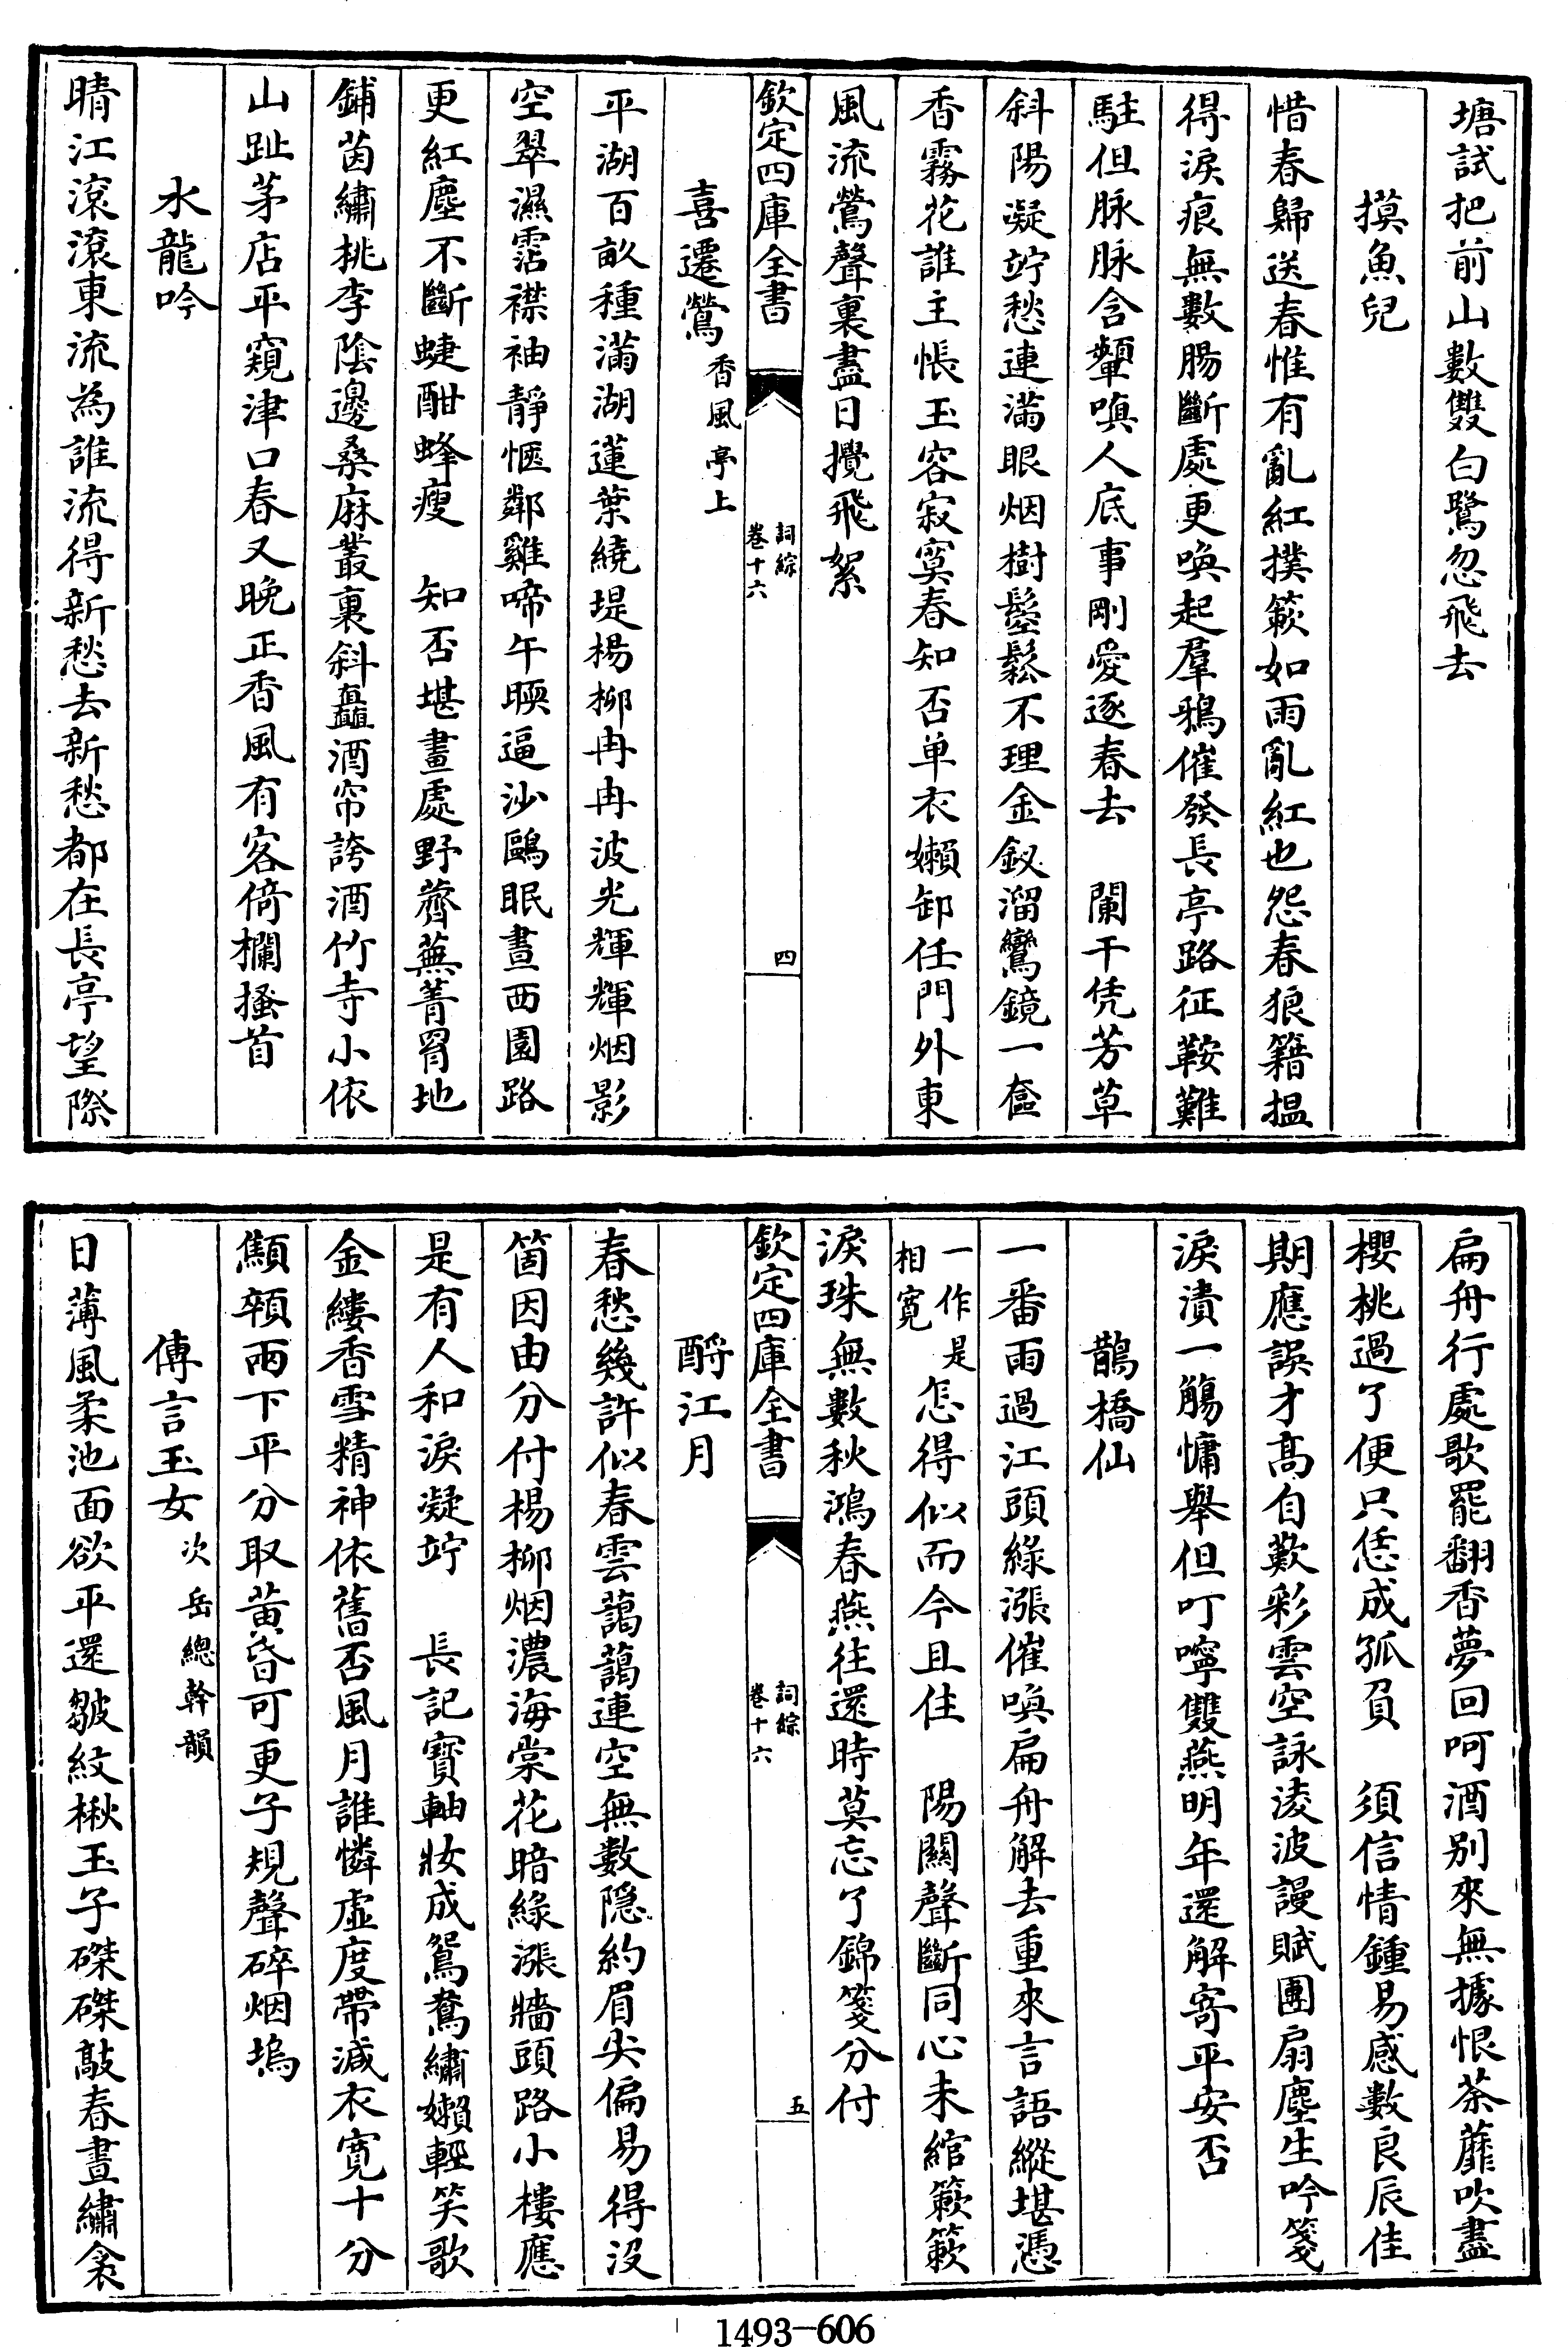 塘試把前山數雙白鷺忽飛去
摸魚兒
惜春歸送春惟有亂紅撲簌如雨亂紅也怨春狼籍搵
得淚痕無數腸斷處更喚起羣鴉催發長亭路征鞍難
駐但脉脉含顰嗔人底事剛愛逐春去　闌干凭芳草
斜陽凝竚愁連滿眼烟樹鬆不理金釵溜鸞鏡一奩
香霧花誰主悵玉容寂寞春知否单衣嬾卸任門外東
風流鶯聲裏盡日攪飛絮
欽定四庫全書
詞綜
卷十六
四
喜遷鶯香風亭上
平湖百畝種滿湖蓮葉繞堤楊柳冉冉波光輝輝烟影
空翠濕霑襟袖靜愜鄰雞啼午暝逼沙鷗眠晝西園路
更紅塵不斷蜨酣蜂瘦　知否堪畫處野薺蕪菁胃地
鋪茵繡桃李陰邊桑麻叢裏斜矗酒帘誇酒竹寺小依
山趾茅店平窺津口春又晚正香風有客倚欄搔首
水龍吟
晴江滾滾東流為誰流得新愁去新愁都在長亭望際
扁舟行處歌罷翻香夢回呵酒别來無據恨荼蘼吹盡
櫻桃過了便只恁成孤負　須信情鍾易感數良辰佳
期應誤才高自歎彩雲空詠凌波謾賦團扇塵生吟箋
淚漬一觴慵舉但叮嚀雙燕明年還解寄平安否
鵲橋仙
一番雨過江頭綠漲催喚扁舟解去重來言語縱堪憑
一作是相寛怎得似而今且住　陽關聲斷同心未綰簌簌
淚珠無數秋鴻春燕往還時莫忘了錦箋分付
欽定四庫全書
詞綜
卷十六
五
酹江月
春愁幾許似春雲藹藹連空無數隱約眉尖偏易得没
箇因由分付楊柳烟濃海棠花暗綠漲牆頭路小樓應
是有人和淚凝竚　長記寶軸妝成鴛鴦繡嬾輕笑歌
金縷香雪精神依舊否風月誰憐虛度帶減衣寛十分
顦顇兩下平分取黃昏可更子規聲碎烟塢
傳言玉女次岳總幹韻
日薄風柔池面欲平還皺紋楸玉子磔磔敲春晝繡衾